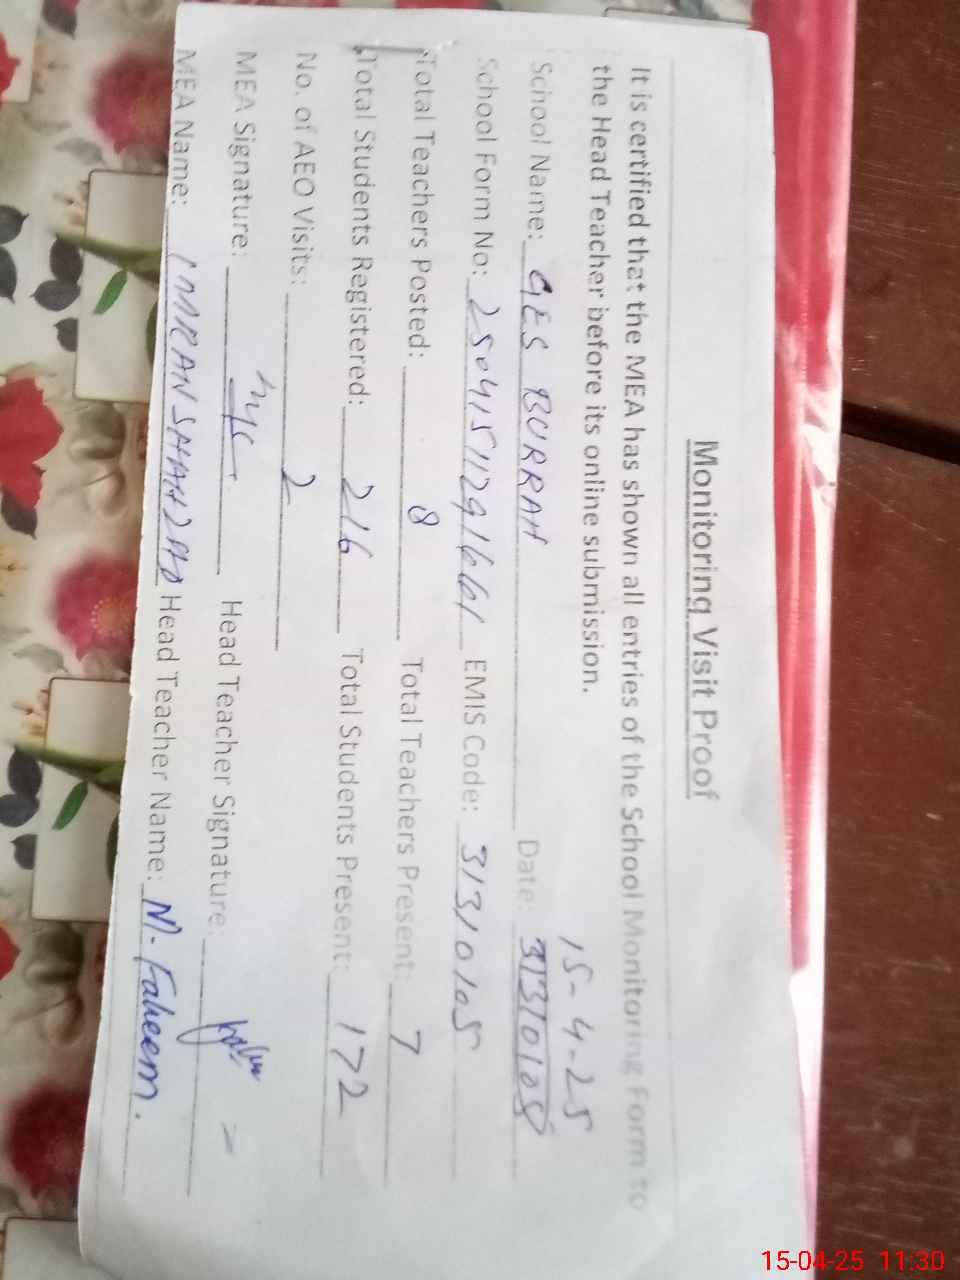 Monitoring Visit Proof
It is certified that the MEA has shown all entries of the School Monitoring Form to
the Head Teacher before its online submission.
15-4-25
School Name: GES BURRAH Date: 31310105
School Form No: 25041511291661 EMIS Code: 31310105
Total Teachers Posted: 8 Total Teachers Present: 7
Total Students Registered: 216 Total Students Present: 172
No. of AEO Visits: 2
MEA Signature: Head Teacher Signature:
MEA Name: IMRAN SHAHZAD Head Teacher Name: M. Faheem.
15-04-25 11:30